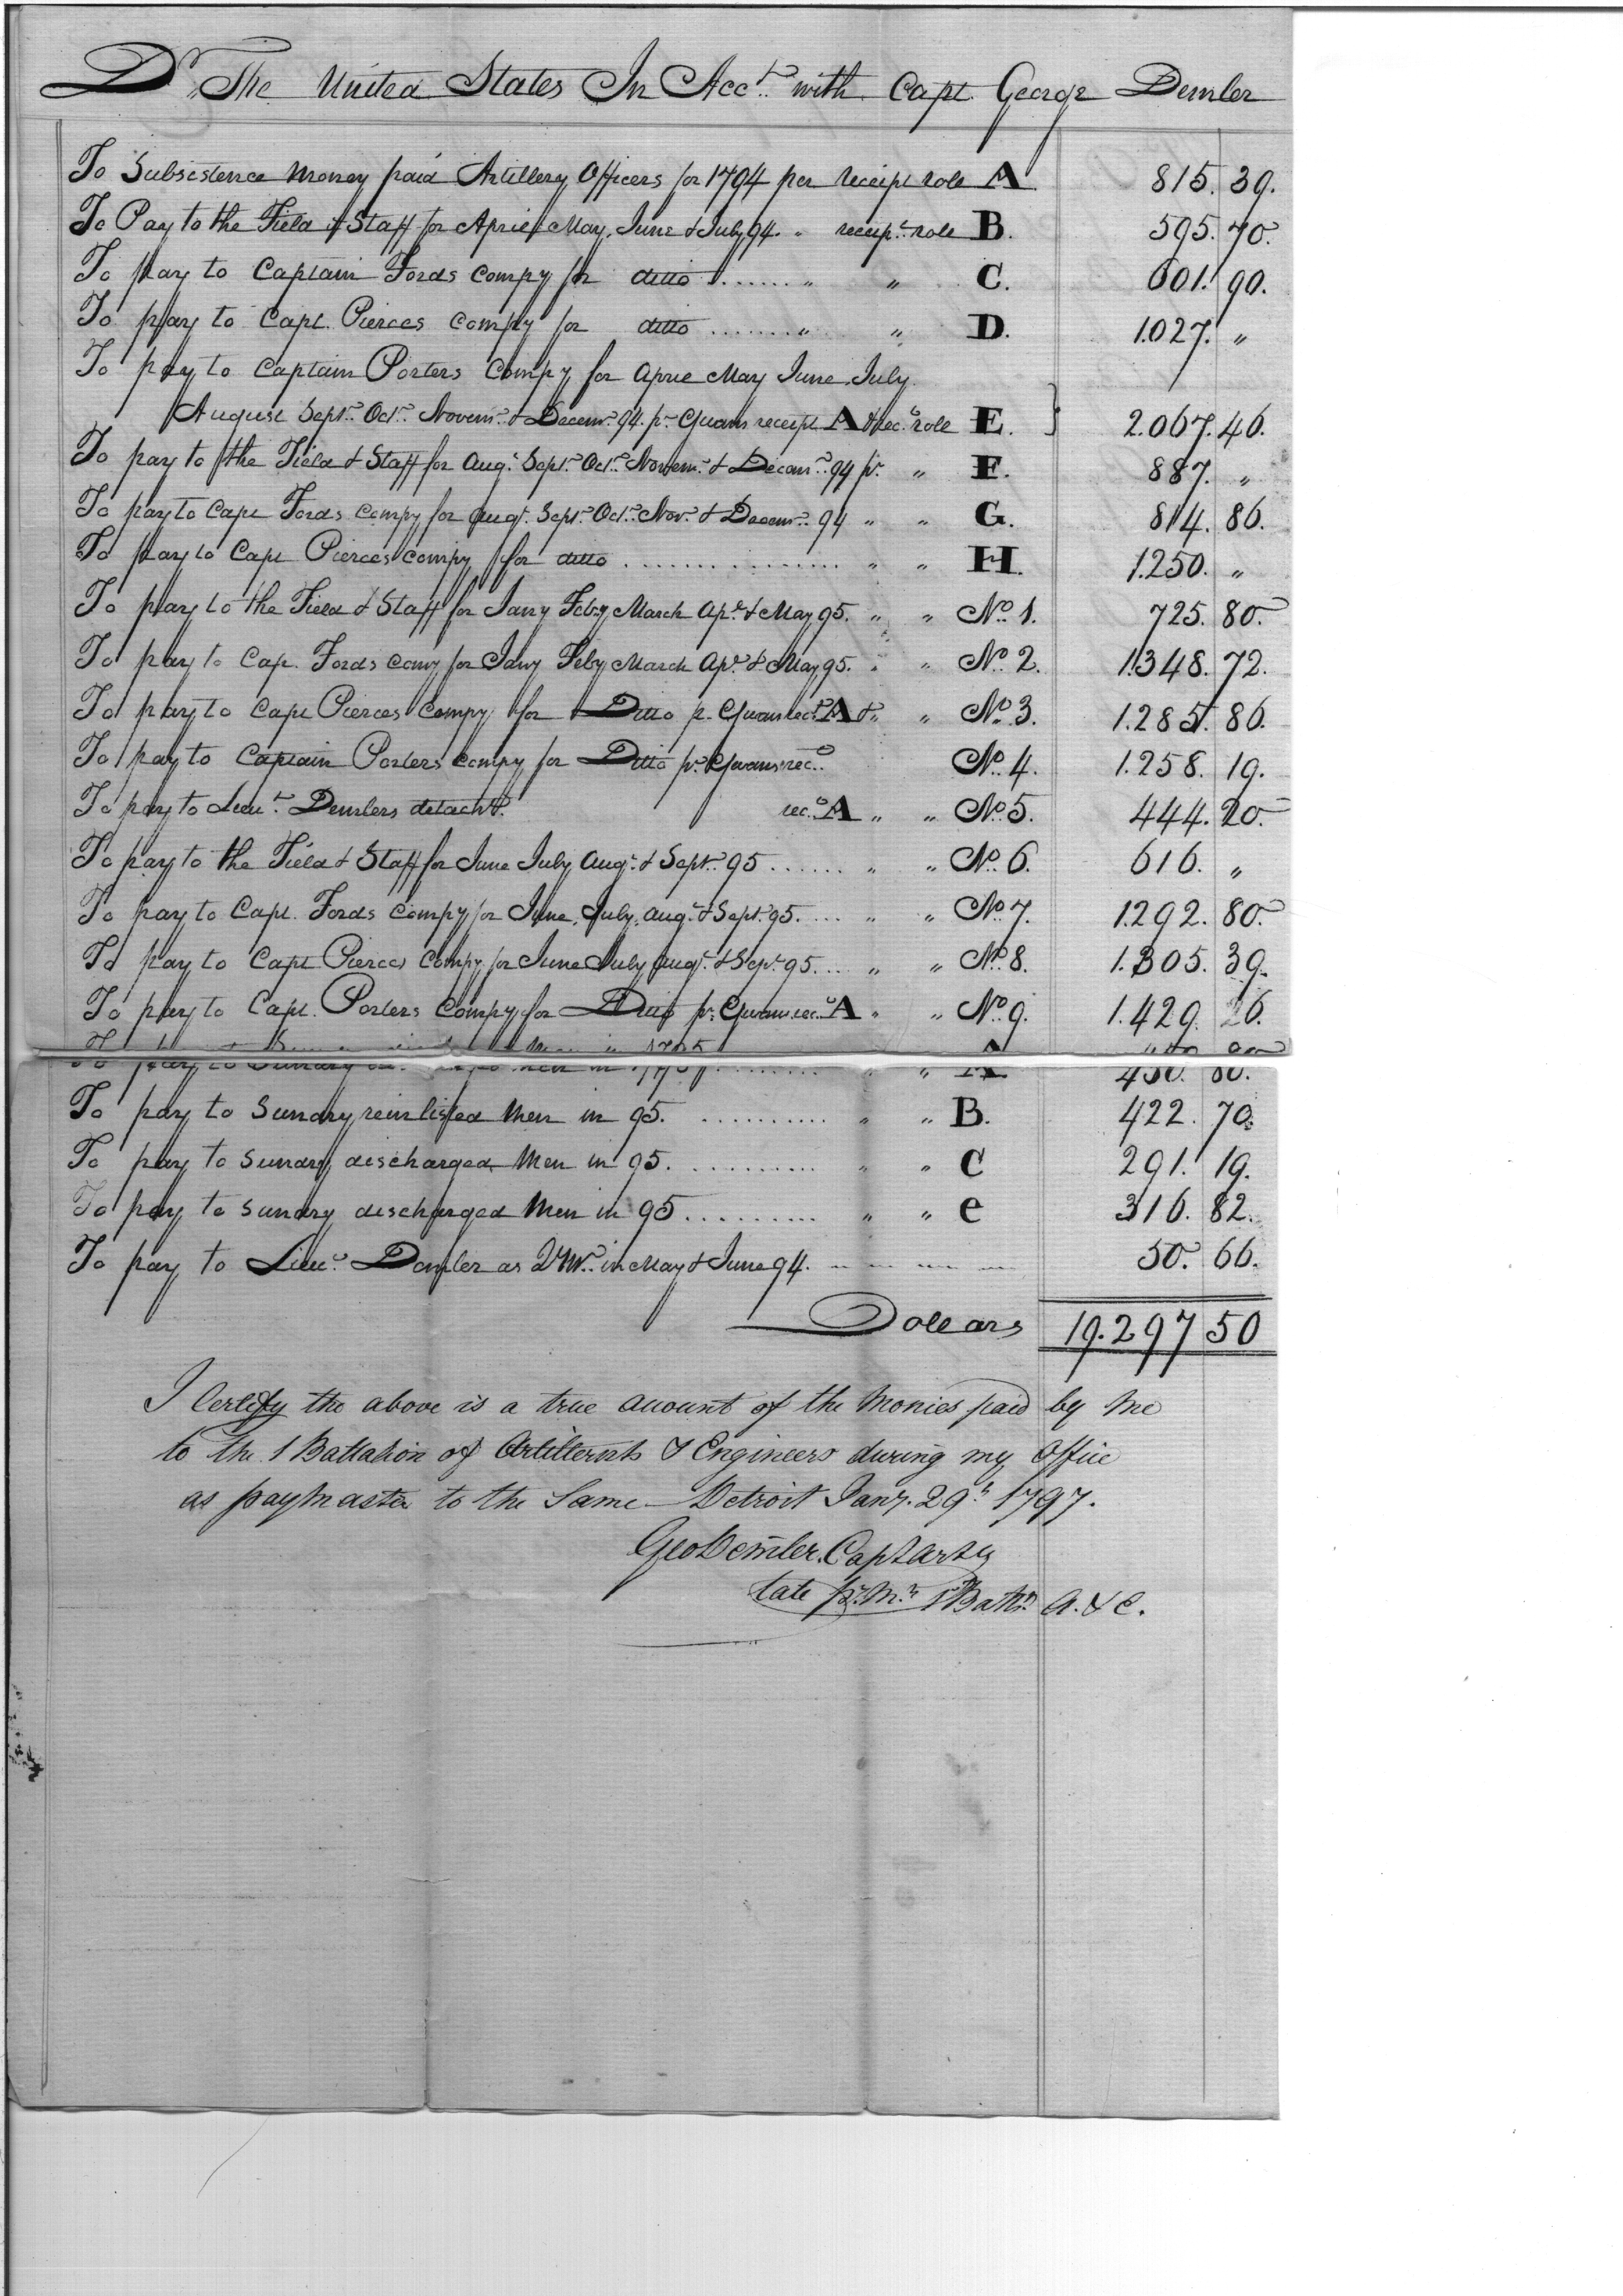 Dr. The United States In Acct. with Capt. George Demler
To Subsistence Money paid Artillery Officers for 1794 per receipt role A. 815. 39.
To Pay to the Field & Staff for April May, June & July 94. " receipt role B. 595. 70.
To pay to Captain Fords Compy for ditto ....... " " C. 601. 90.
To pay to Capt. Pierces Compy for ditto ....... " " D. 1.027. "
To pay to Captain Porters Compy for Aprie May June July
August Sept. Oct. Novem. & Decem. 94. pr. receipt A & rec. role E. } 2.067. 46.
To pay to the Field & Staff for Aug. Sept. Oct. Novem. & Decem. 94 pr. " F. 887. "
To pay to Capt Fords Compy for Augt. Sept. Oct. Nov. & Decem. 94 " " G. 814. 86.
To pay to Capt Pierces Compy for ditto ................ " " H. 1.250. "
To pay to the Field & Staff for Jany Feby March Apr. & May 95. " " No. 1. 725. 80
To pay to Cap. Fords Comy for Jany Feby March Apr. & May 95. " " No. 2. 1.348. 72.
To pay to Capt Pierces Compy for Ditto p. rect. A & " " No. 3. 1.285. 86.
To pay to Captain Porters Compy for Ditto pr. rec. No. 4. 1.258. 19.
To pay to Lieut. Demlers detacht. rec. A " " No. 5. 444. 20
To pay to the Field & Staff for June July Aug. & Sept. 95 ...... " " No. 6. 616. "
To pay to Capt. Fords Compy for June, July, Aug. & Sept. 95. .... " " No. 7. 1.292. 80.
To pay to Capt Pierces Compy for June July Augt. & Sept. 95. ... " " No. 8. 1.305. 39.
To pay to Capt. Porters Compy for Ditto pr. rec. A " " No. 9. 1.429. 26.
To pay to Sundry men in 1795. ........ " " A. 450. 80.
To pay to Sundry reinlisted Men in 95. .......... " " B. 422. 70.
To pay to Sundry discharged Men in 95. .......... " " C 291. 19.
To pay to Sundry discharged Men in 95 .......... " " e 316. 82.
To pay to Lieu. Demler as QM. in May & June 94. 50. 66.
Dollars 19.297 50
I Certify the above is a true account of the Monies paid by Me
to the 1 Battalion of Artillerists & Engineers during my Office
as paymaster to the Same — Detroit Jany. 29th 1797.
Geo Demler. Capt Arty
late P. Mr. 1 Battn. A. & E.